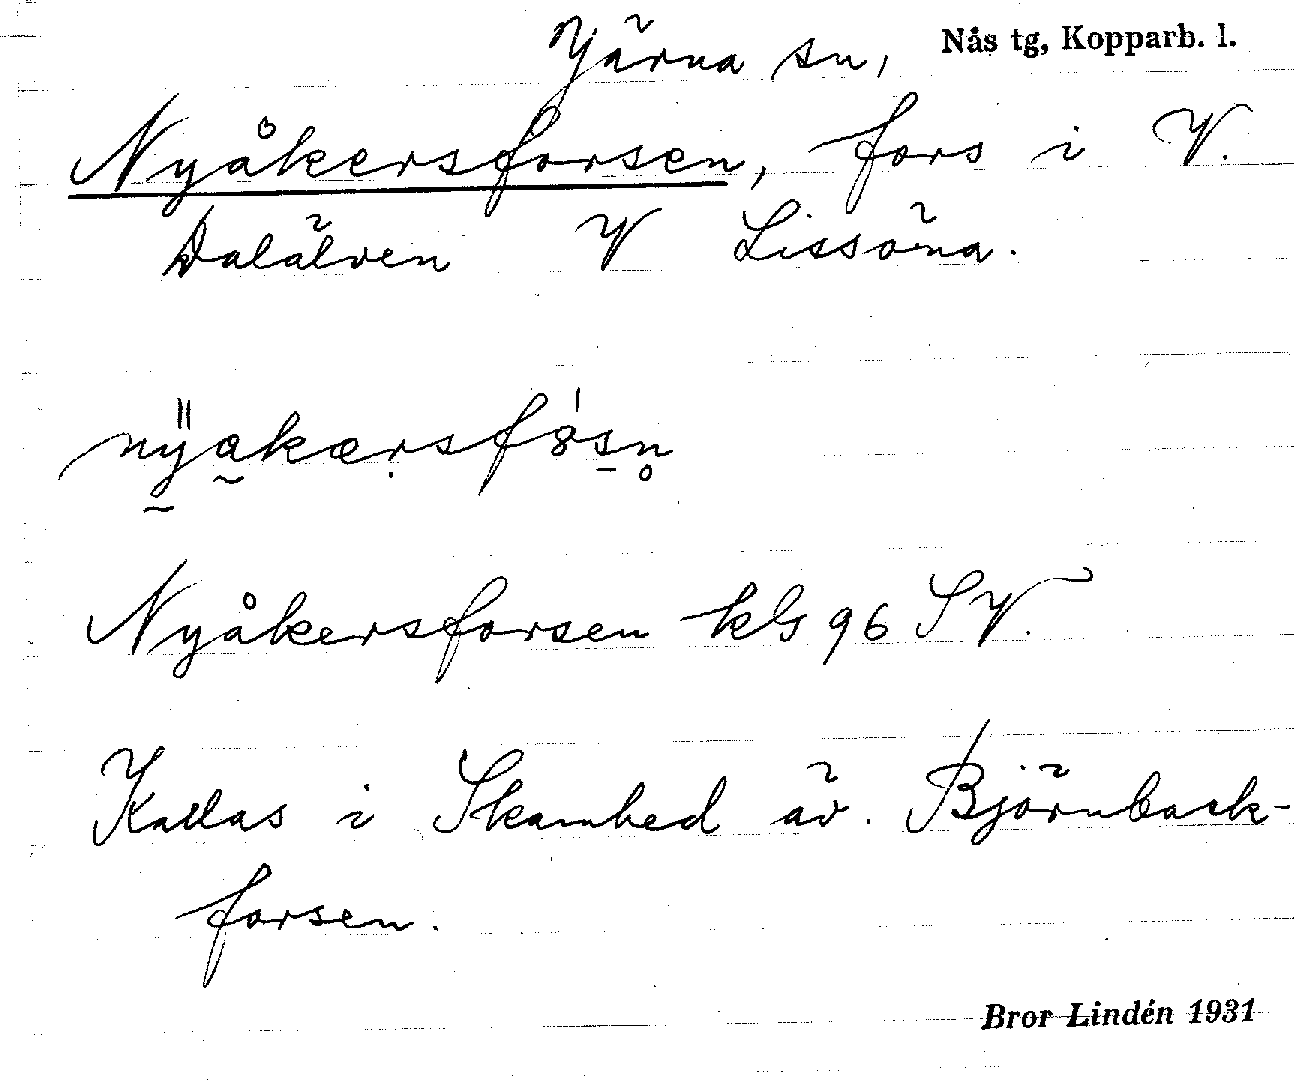 Järna sn, Nås tg, Kopparb. l.
Nyåkersforsen, fors i V.
Dalälven V Lissöna.
Nyåkersforsen kbl 96 SV.
Kallas i Skamhed äv. Björnback-
forsen.
Bror Lindén 1931